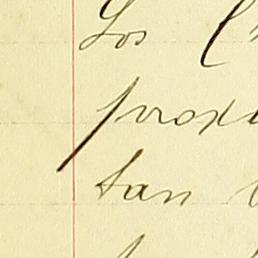 Los
proxi
tan